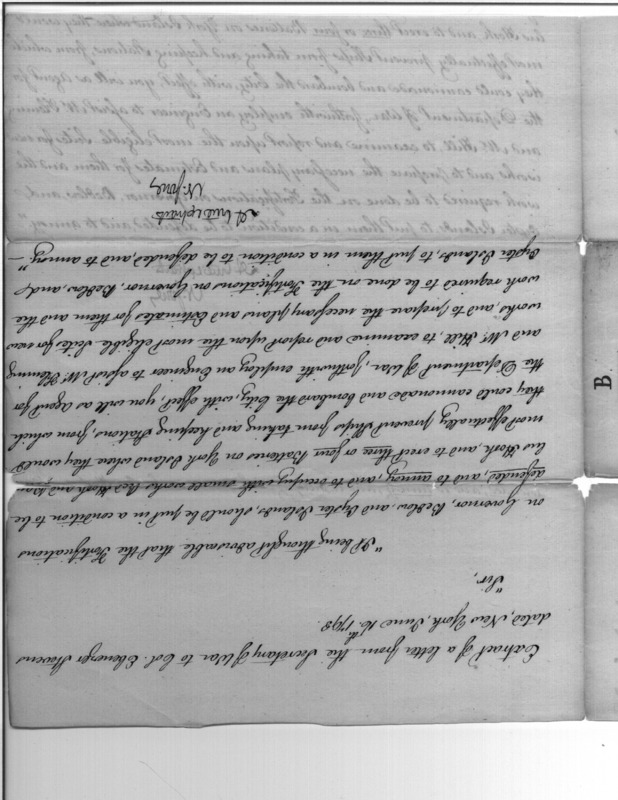 Extract of a letter from the Secretary of War to Col. Ebenezer Stevens
dated, New York, June 16th 1798.
"Sir,
"It being thought adviseable that the Fortifications
on Governor, Bedlow, and Oyster Islands, should be put in a condition to be
defended, and to annoy, and to occupy with small works Red Hook and
Hook, and to erect three or four Batteries on York Island where they would
most effectually prevent Ships from taking and keeping Stations, from which
they could cannonade and bombard the City, with effect, you will as Agent for
the Department of War, forthwith employ an Engineer to assist Mr. Fleming
and Mr. Hill, to examine and report upon the most eligible Scites for new
works, and to prepare the necessary plans and Estimates for them and the
work required to be done on the Fortifications on Governor, Bedlow, and
Oyster Islands, to put them in a condition to be defended, and to annoy."—
A true extract
N. Jones
B.